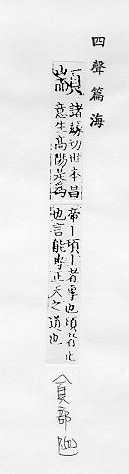 四聲篇海
顓 諸緣切世本昌
意生高陽是為
帝丨頊丨者專也頊者正
也言能專正天之道也
頁部